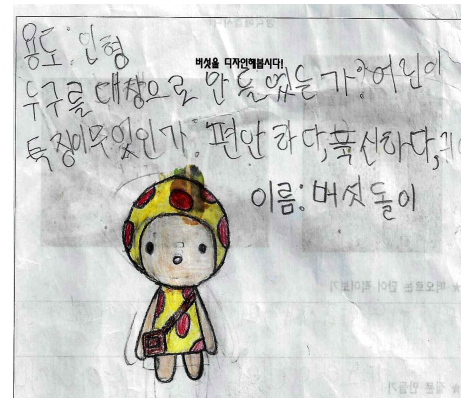 용도: 인형
버섯을 디자인해봅시다!
누구를 대상으로 만들었는가? 어린이
특징이 무엇인가: 편안하다, 푹신하다, 귀
이름: 버섯돌이